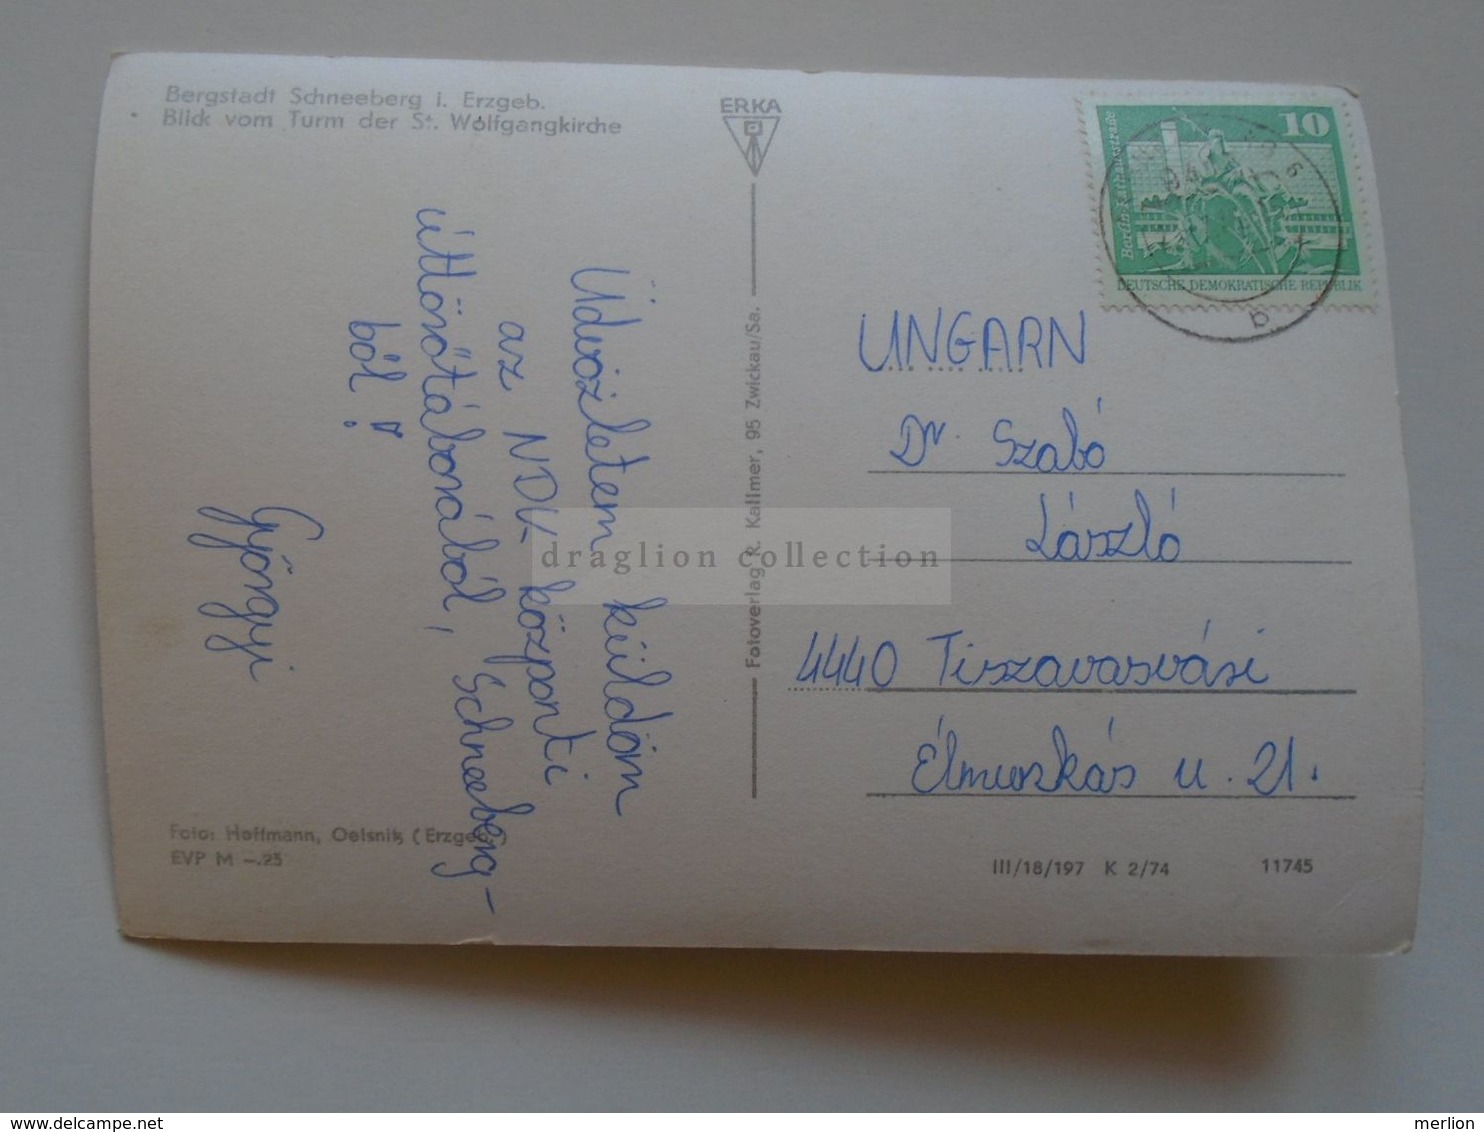 Bergstadt Schneeberg i. Erzgeb.
Blick vom Turm der St. Wolfgangkirche
ERKA
10
Berlin,
DEUTSCHE DEMOKRATISCHE REPUBLIK
b
Üdvözletem küldöm
az NDK központi
úttörőtáborából, Schneeberg-
ból!
Györgyi
Fotoverlag R. Kallmer, 95 Zwickau/Sa.
UNGARN
Dr. Szabó
László
4440 Tiszavasvási
Élmunkás u. 21.
Foto: Hoffmann, Oelsnitz (Erzgeb.)
EVP M –.25
III/18/197 K 2/74 11745
draglion collection
www.delcampe.net
merlion